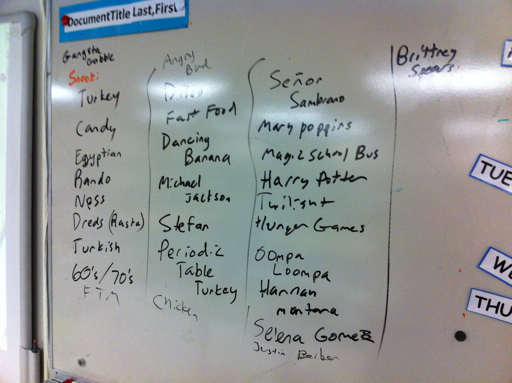 DocumentTitle Last, First
Gangsta
Gobble
Sweet:
Turkey
Candy
Egyptian
Rando
Ness
Dreds (Rasta)
Turkish
60's/70's
FTM
Angry
Bird
Fast Food
Dancing
Banana
Michael
Jackson
Stefan
Periodic
Table
Turkey
Chicken
Señor
Sambrano
Mary poppins
Magic School Bus
Harry Potter
Twilight
Hunger Games
Oompa
Loompa
Hannah
montana
Selena Gomez
Justin Beiber
Brittney
Spears
TUE
W
THU